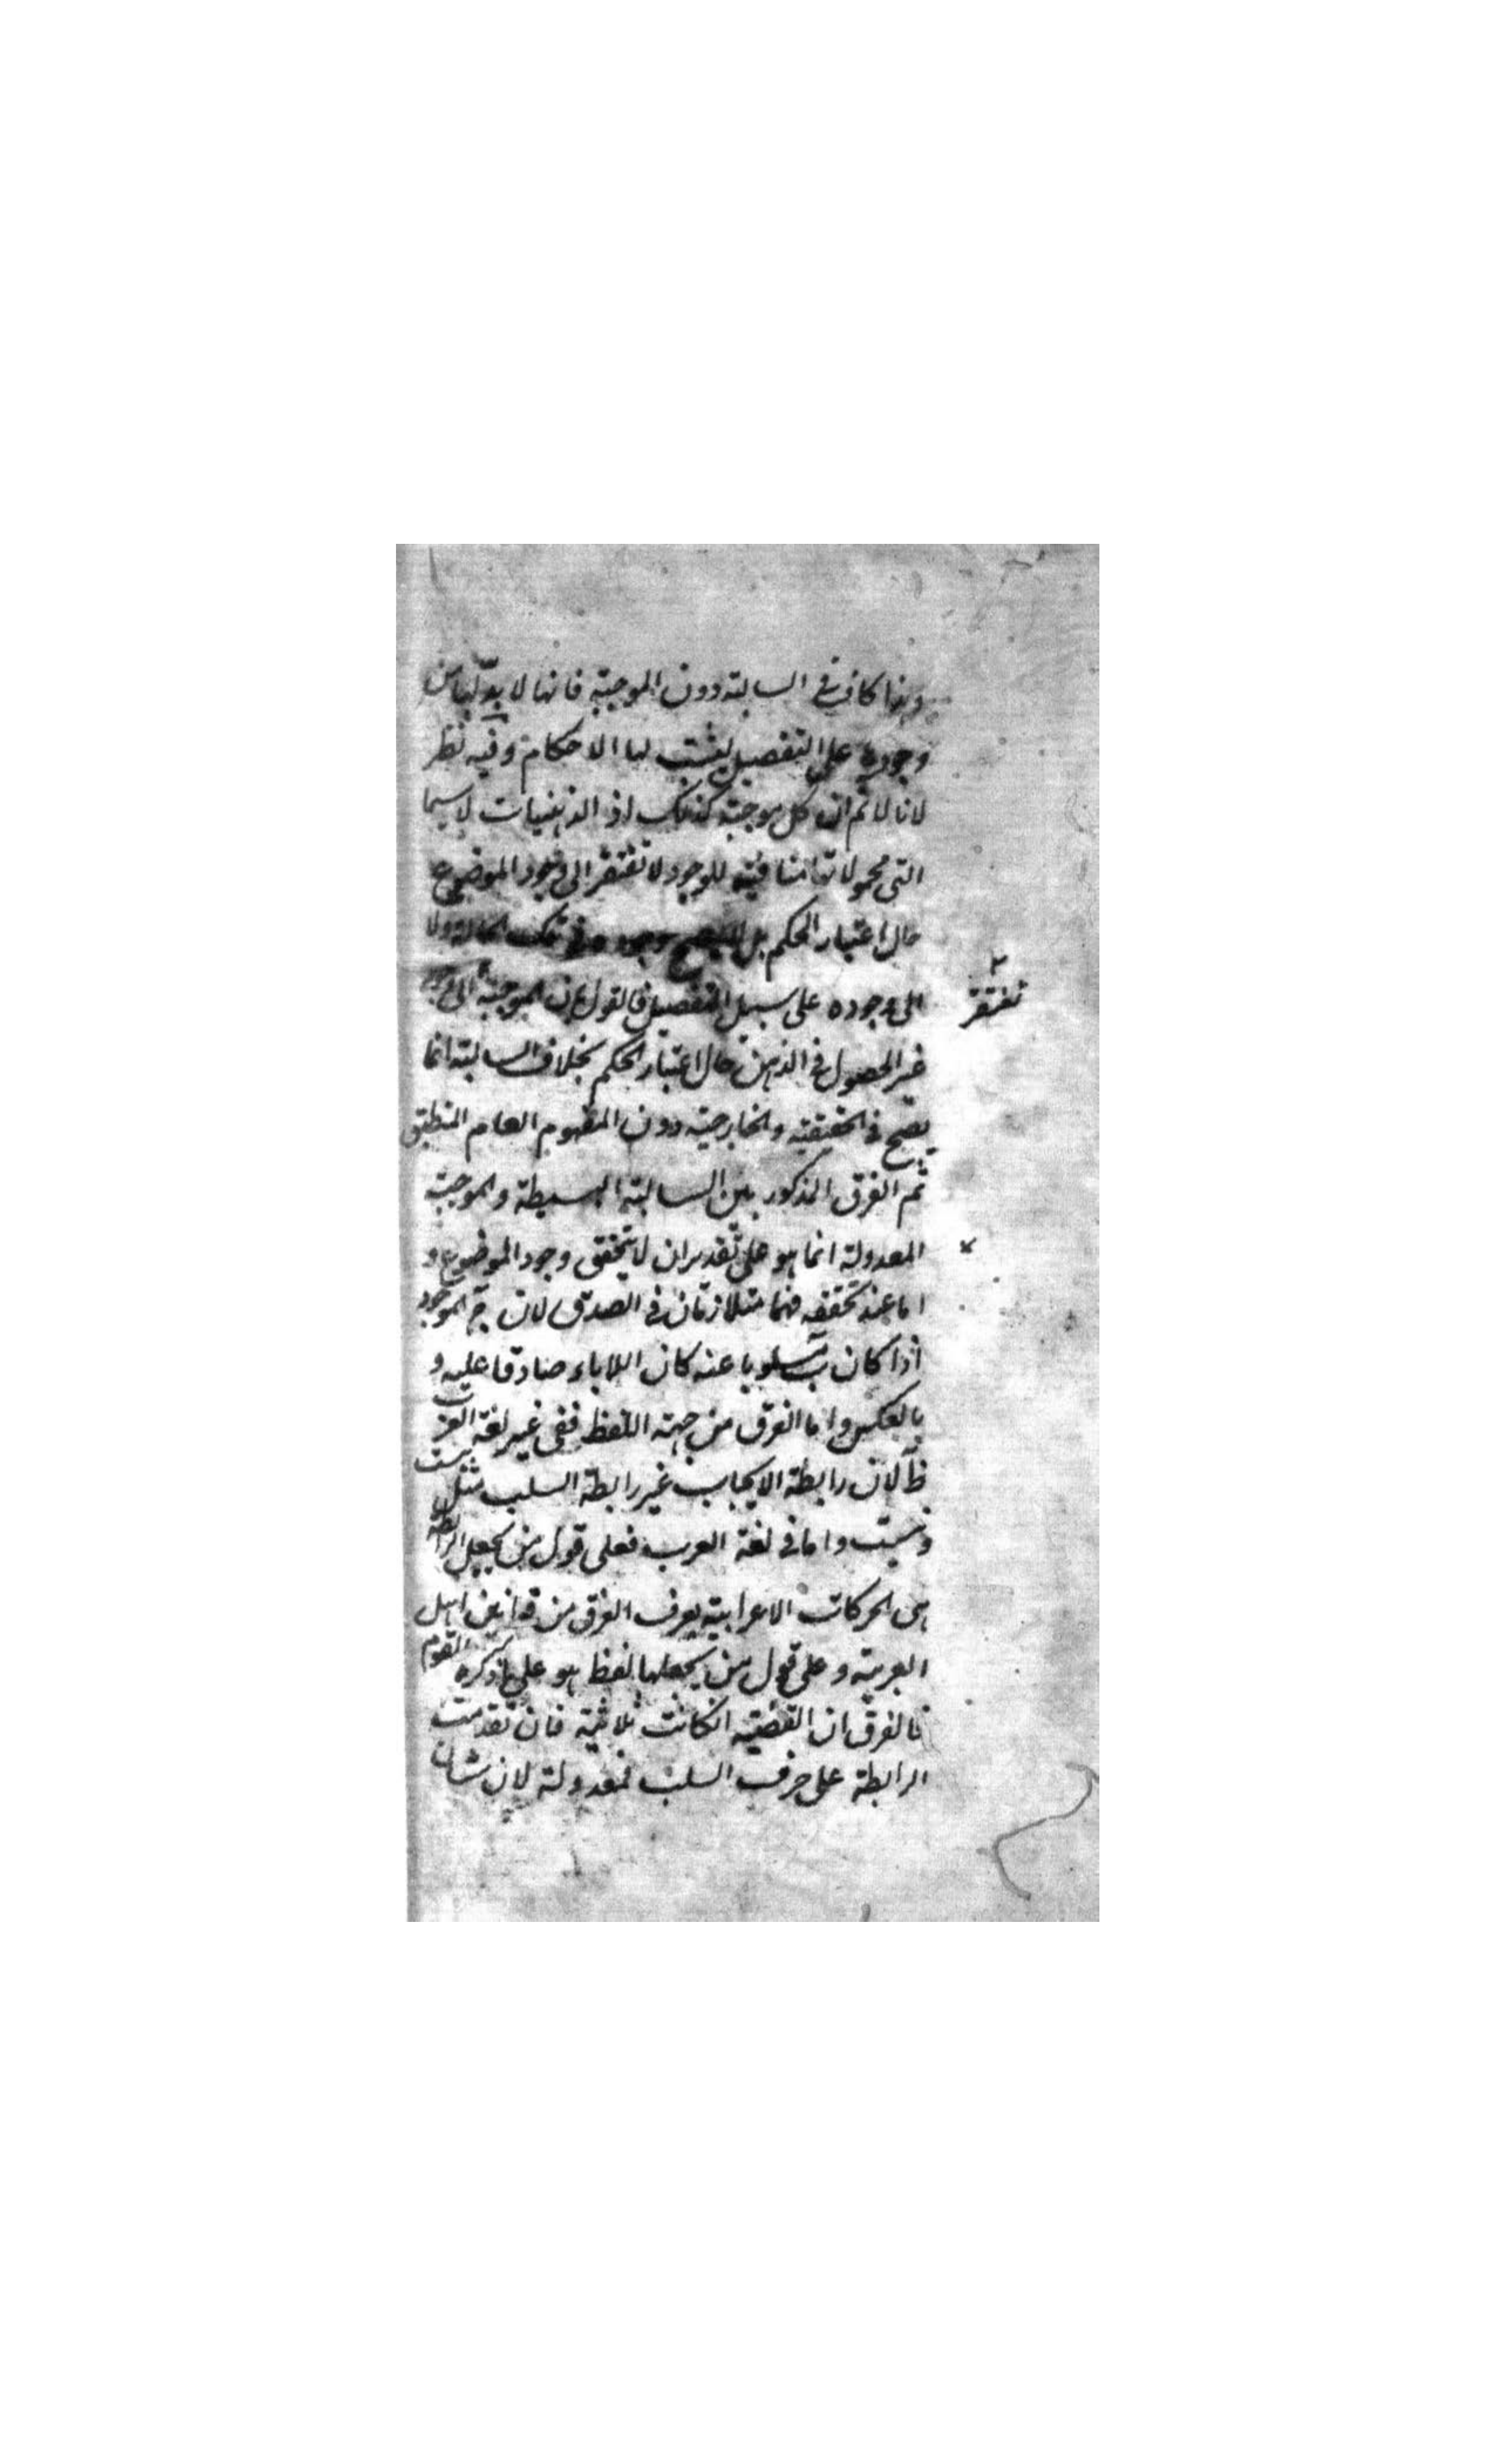 وهذا كاف في السالبة دون الموجبة فانها لا بد لها من
وجودها على التفصيل ليثبت لها الاحكام وفيه نظر
لانا لا نم ان كل موجبة كذلك اذ الذهنيات لا سيما
التى محمولاتها منافية للوجود لا تفتقر الى وجود الموضوع
حال اعتبار الحكم بل وجوده في تلك الحالة ولا
تفتقر
الى وجوده على سبيل التفصيل فالقول بان الموجبة
غير الحصول في الذهن حال اعتبار الحكم بخلاف السالبة انما
يصح في الحقيقية والخارجية دون المفهوم العام المنطبق
ثم الفرق المذكور بين السالبة البسيطة والموجبة
المعدولة انما هو على تقدير ان لا يتحقق وجود الموضوع و
اما عند تحققه فهما متلازمتان في الصدق لان ج الموجود
اذا كان ب مسلوبا عنه كان اللاباء صادقا عليه و
بالعكس واما الفرق من جهة اللفظ ففى غير لغة العرب
ظ لان رابطة الايجاب غير رابطة السلب مثل هست
ونيست واما في لغة العرب فعلى قول من يجعل الرابطة
هى الحركات الاعرابية يعرف الفرق من قوانين اهل
العربية وعلى قول من يجعلها لفظ هو على ما ذكره القوم
فالفرق ان القضية انكانت ثلاثية فان تقدمت
الرابطة على حرف السلب فمعدولة لان شان